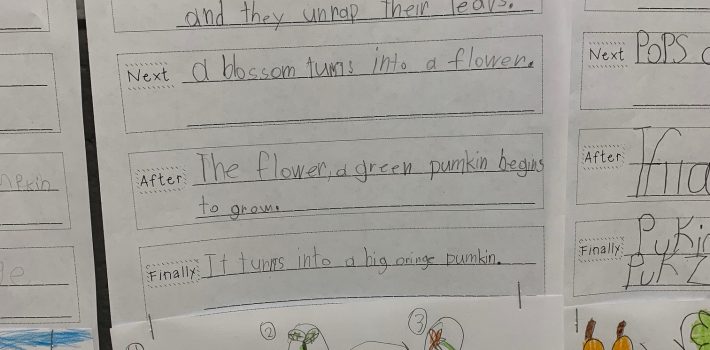 and they unrap their leavs.
Next a blossom turns into a flower.
After The flower, a green pumkin begins
to grow.
Finally It turns into a big oringe pumkin.
②
③
Next PoPS
After
Finally